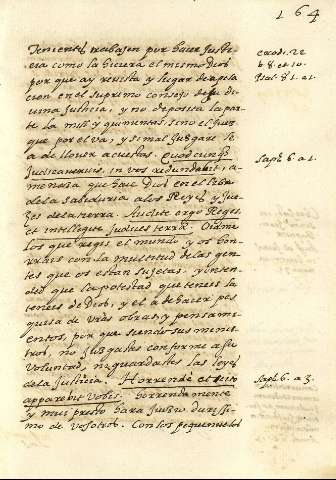 164
Tenientes, trabajen por hacer Justi
cia como la hiciera el mismo Dios
por que ay revista y lugar de apela
cion en el supremo consejo de su
diuina Justicia, y no deposita la par
te la mil y quinientas, sino el Juez
que por el va, y si mal juzgare le
a de llouer acuestas. Quodcunque
Judicaueritis, in vos redundabit, a
menaza que hace Dios en el libro
de la sabiduria a los Reyes y Jue
zes de la tierra. Audite ergo Reges
et intelligite Judices terræ. Oidme
los que regis el mundo y os hon
rrais con la multitud de las gen
tes que os estan sujetas. y enten
ded que la potestad que teneis la
teneis de Dios, y el a de hacer pes
quisa de vras obras, y pensami
entos, por que siendo sus minis
tros, no juzgastes conforme a su
Voluntad, ni guardastes las leyes
de la Justicia. Horrende et cito
apparebit vobis. horrendamente
y mui presto hara Juizio durissi
mo de vosotros. Con los pequeñuelos
exodi. 22
6 8 et 10.
Psal 81. a 1.
Sap. 6. a 1.
Sap. 6. a 3.